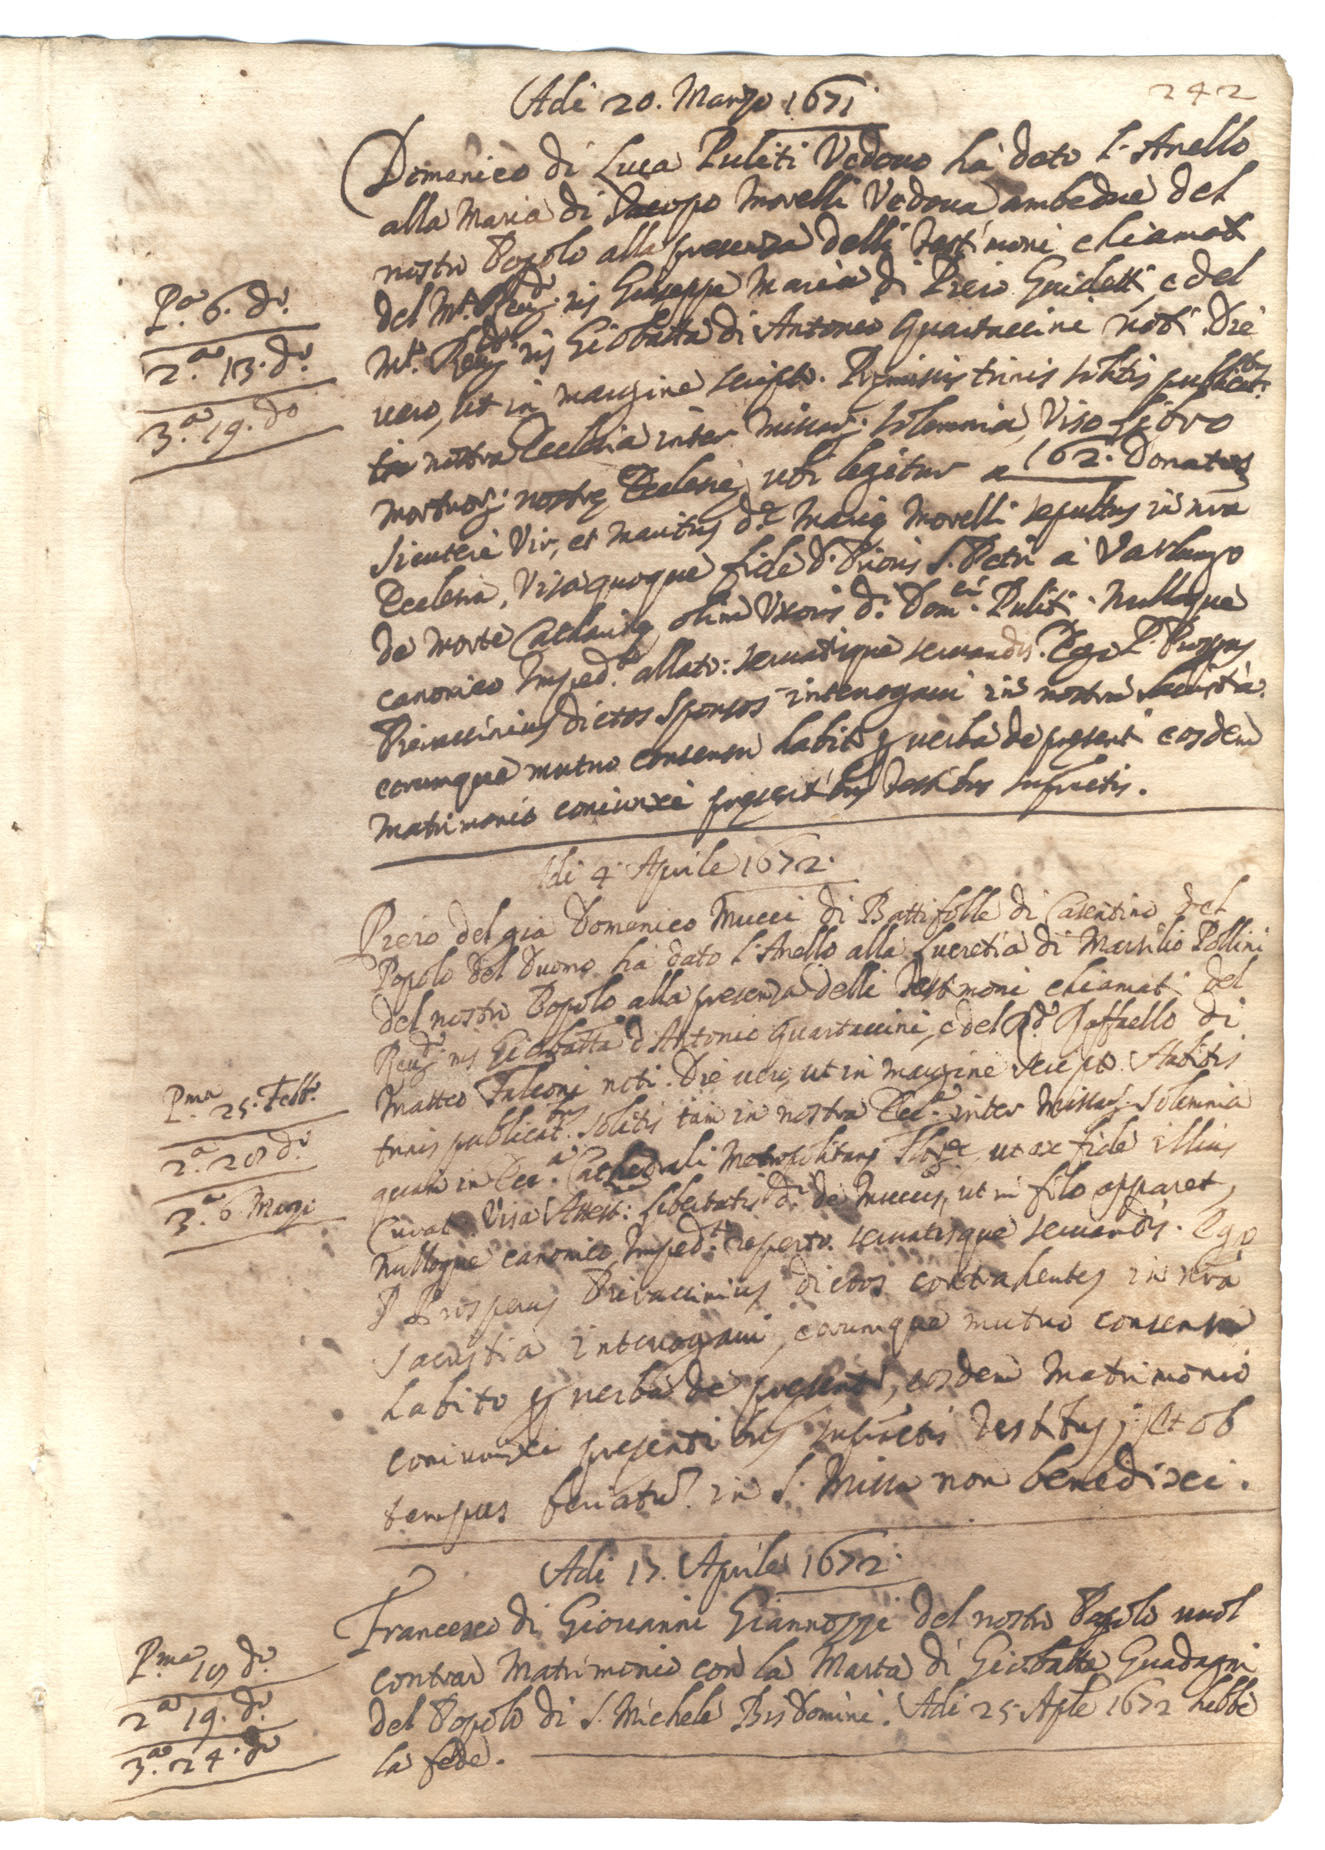 242
Adi 20. Marzo 1671
Domenico di Luca Puliti Vedouo hà dato l'Anello
alla Maria di Iacopo Morelli Vedoua ambedue del
nostro Popolo alla presenza delli Testimoni chiamati
del M.to Reu.do ns Giuseppe Maria di Piero Guidetti, e del
P.a 6. do.
M.to Reu.do ns Giobatta di Antonio Quartuccini noti. Die
2.a 13. do.
uero, ut in margine scripto. Premissis trinis solitis publicat.bus
3.a 19. do
in nostra Ecclesia inter Missar. solemnia, Viso libro
mortuor. nostrę Ecclesię, ubi legitur a 162. Donatus
Vir, et maritus d.ę Marię Morelli sepultus in nra
Ecclesia, Visa quoque fide D. Prioris S. Petri à Varlungo
de morte Catharinę olim Uxoris d.i Dom.ci Puliti. Nulloque
canonico Imped.to allato: seruatisque seruandis. Ego P. Prosper
dictos Sponsos interrogaui in nostra sacristia.
eorumque mutuo consensu habito per uerba de presenti eosdem
matrimonio coniunxi presentibus testibus infrictis.
Adi 4. Aprile 1672.
Piero del già Domenico Mucci di Battifolle di Casentino del
Popolo del Duomo hà dato l'Anello alla Lucretia di Marsilio Pollini
del nostro Popolo alla presenza delli Testimoni chiamati del
Reu.do ns Giobatta d'Antonio Quartuccini, e del R.do Raffaello di
Matteo Falconi noti. Die uero, ut in margine scripto. Habitis
P.ma 25. Febb.o
trinis publicat.bus solitis tam in nostra Eccl.a inter Missar. solemnia
2.a 28 do.
quam in Ecc.a Cathedrali Metropolitana ut ex fide illius
3.a 6 Marzi
Curat. Visa Attest: libertatis d.i de Muccis, ut in filo apparet,
Nulloque canonico Imped.to reperto. seruatisque seruandis. Ego
P Prosperus dictos contrahentes in nra
sacristia interrogaui, eorumque mutuo consensu
habito per uerba de presenti, eosdem Matrimonio
coniunxi presentibus infrictis testibus; Et ob
tempus feriatu. in S. Missa non benedixi.
Adi 17. Aprile 1672.
Francesco di Giouanni Giannozzi del nostro Popolo uuol
P.ma 18 do.
contrar Matrimonio con la Marta di Giobatta Guadagni
2.a 19. do.
del Popolo di S. Michele Bisdomini. Adi 25 Aple 1672 hebbe
3.a 24. do
la fede.